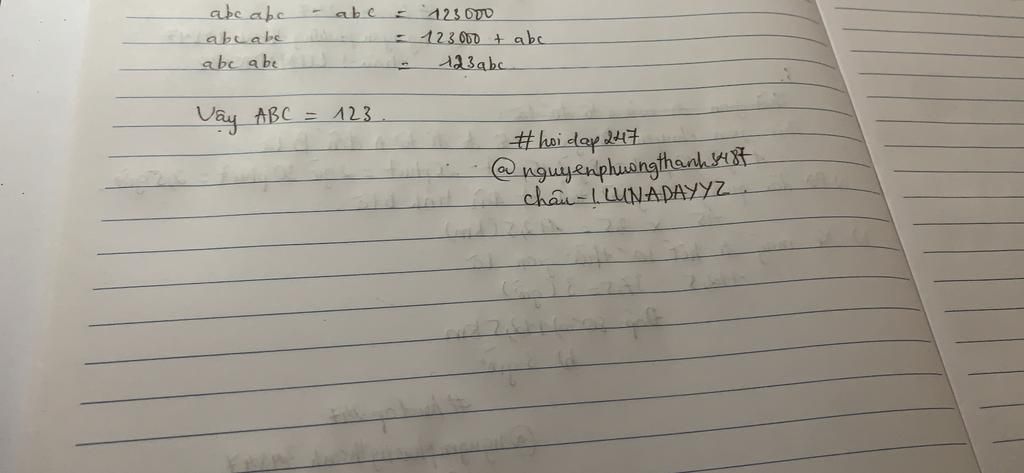 abc abc - abc = 123000
abc abc = 123000 + abc
abc abc = 123abc
Vậy ABC = 123.
#hoidap247
@nguyenphuongthanh3487